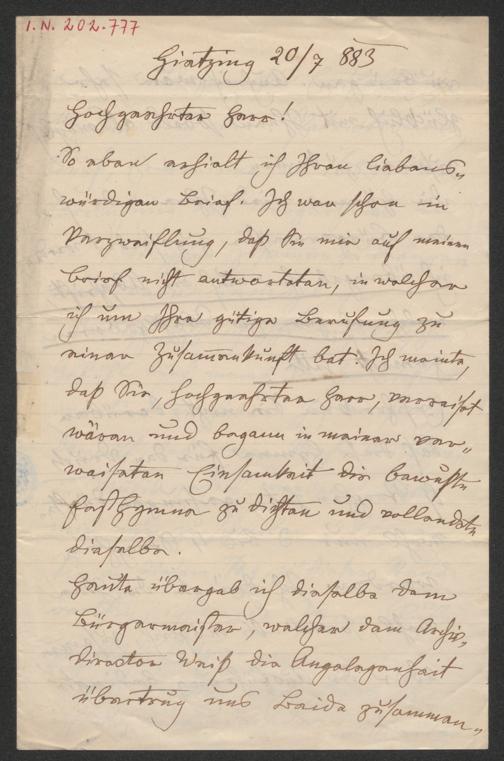 I. N. 202.777
Hietzing 20/7 883
Hochgeehrter Herr!
So eben erhielt ich Ihren liebens„
würdigen Brief. Ich war schon in
Verzweiflung, daß Sie mir auf meinen
Brief nicht antworteten, in welchem
ich um Ihre gütige Berufung zu
einer Zusammenkunft bat. Ich meinte,
daß Sie, hochgeehrter Herr, verreiset
wären und begann in meiner ver„
waisten Einsamkeit die bewußte
Festhymne zu dichten und vollendete
dieselbe.
Heute übergab ich dieselbe dem
Bürgermeister, welcher dem Archiv„
director Weiß die Angelegenheit
übertrug uns Beide zusammen„